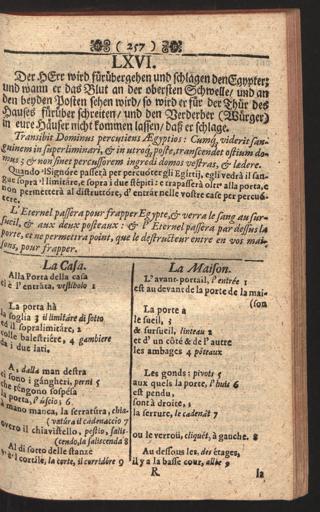 ( 257 )
LXVI.
Der HErr wird fürübergehen und schlagen den Egypter;
und wann er das Blut an der obersten Schwelle/ und an
den beyden Posten sehen wird/ so wird er für der Thür des
Hauses fürüber schreiten/ und den Verderber (Würger)
in eure Häuser nicht kommen lassen/ daß er schlage.
Transibit Dominus percutiens Ægyptios: Cumq; viderit san-
guinem in superliminari, & in utroq; poste, transcendet ostium do-
mus; & non sinet percussorem ingredi domos vestras, & lædere.
Quando 'lSignóre passerà per percuótere gli Egíttij, egli vedrà il san-
gue sopra 'l limitáre, e sopra i due stépiti: e trapasserà oltr' alla porta, e
non permetterà al distruttóre, d' entrár nelle vostre case per percuó-
tere.
L'Eternel passera pour frapper Egypte, & verra le sang au sur-
sueil, & aux deux poteaux: & l' Eternel passera par dessus la
porte, et ne permettra point, que le destructeur entre en vos mai-
sons, pour frapper.
La Casa.
Alla Porta della casa
ci è l' entráta, vestibolo 1
La porta hà
la soglia 3 il limitáre di sotto
ed il sopralimitáre, 2
colle balestriére, 4 gambiere
da i due lati.
A, dalla man destra
ci sono i gángheri, perni 5
che téngono sospésa
la porta, l'úscio; 6.
a mano manca, la serratúra, chia-
(vatúra il cadenaccio 7
overo il chiavistello, pestio, salis-
(cendo, la saliscenda 8
Al di sotto delle stanze
v' è 'l cortíle, la corte, il corridóre 9
La Maison.
L'avant-portail, l' entrée 1
est au devant de la porte de la mai-
(son
La porte a
le sueil, 3
& sursueil, linteau 2
et d' un côté & de l' autre
les ambages 4 póteaux
Les gonds: pivots 5
aux quels la porte, l'huis 6
est pendu,
sont à droite, 5
la serrure, le cadenát 7
ou le verroü, cliquét, à gauche. 8
Au dessous les, des étages,
il y a la basse cour, allée 9
R.
la